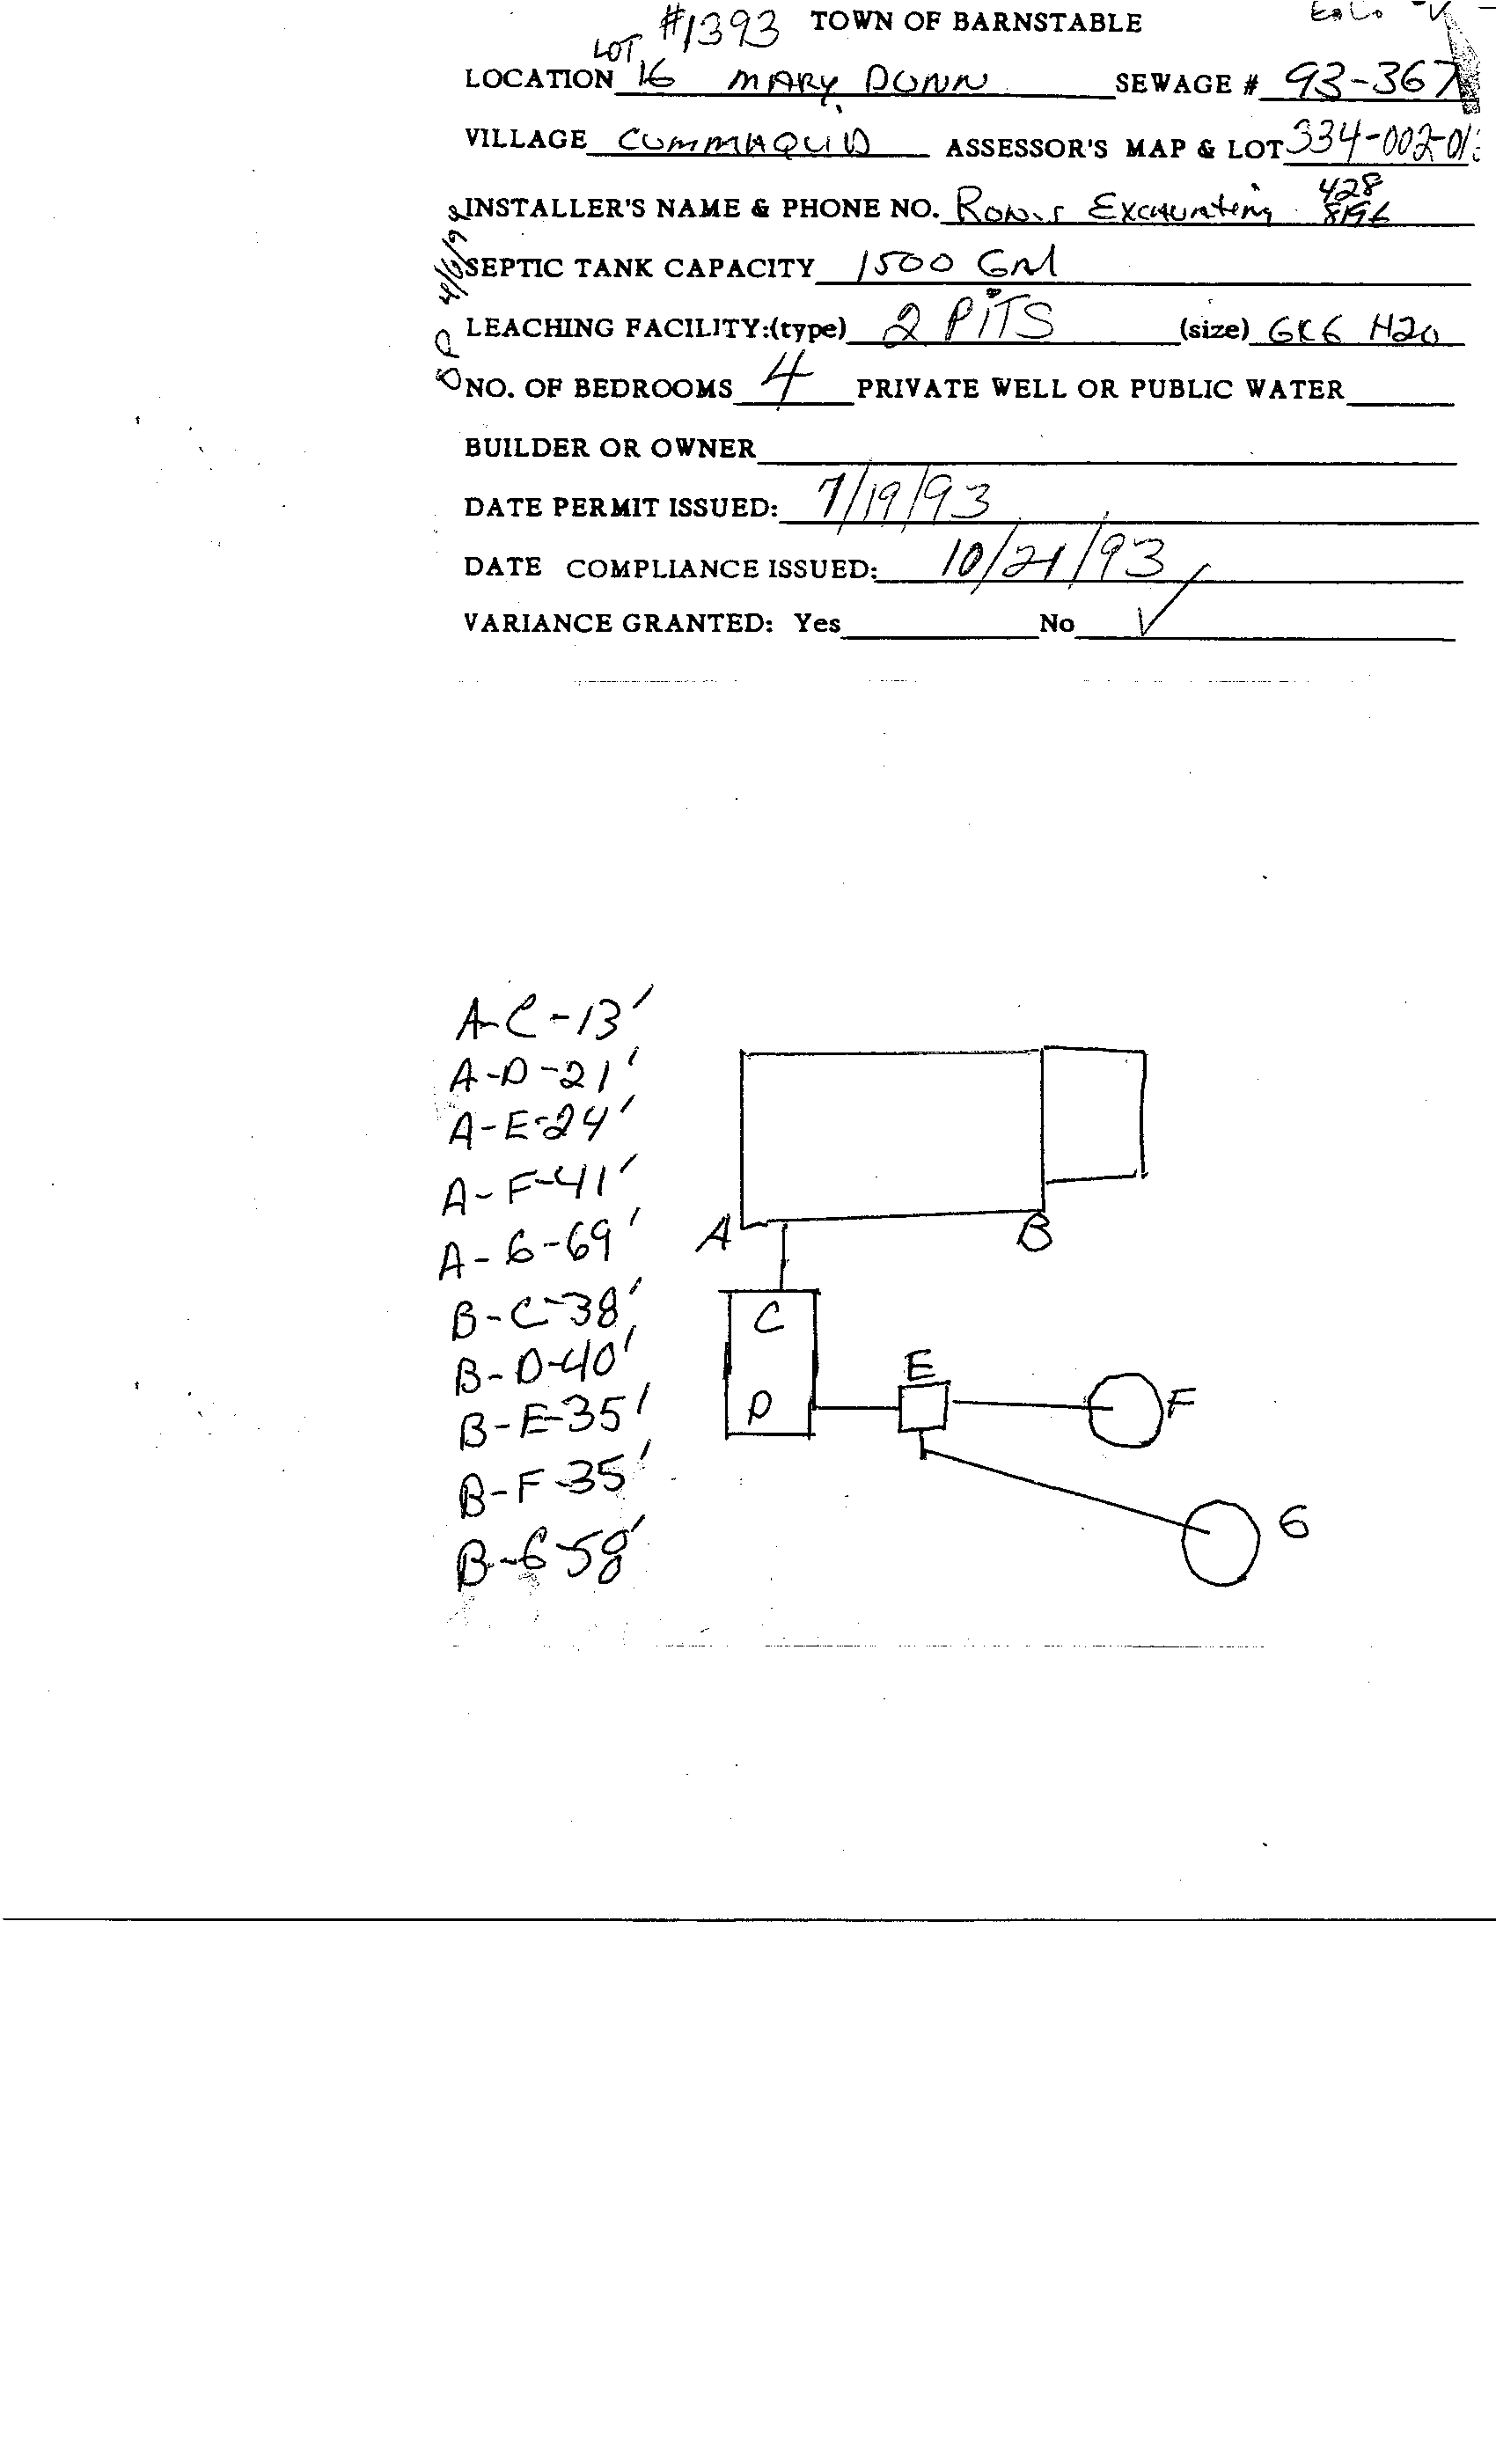 #1393 TOWN OF BARNSTABLE
LOT
LOCATION 16 MARY DUNN SEWAGE # 93-367
VILLAGE CUMMAQUID ASSESSOR'S MAP & LOT 334-002-01
428
INSTALLER'S NAME & PHONE NO. Excavating 8196
SEPTIC TANK CAPACITY 1500 GAL
LEACHING FACILITY:(type) 2 PITS (size) 6X6 H20
NO. OF BEDROOMS 4 PRIVATE WELL OR PUBLIC WATER
BUILDER OR OWNER
DATE PERMIT ISSUED: 7/19/93
DATE COMPLIANCE ISSUED: 10/21/93
VARIANCE GRANTED: Yes No ✓
A-C-13'
A-D-21'
A-E-24'
A-F-41'
A-G-69'
B-C-38'
B-D-40'
B-E-35'
B-F-35'
B-G-58'
A B
C
E
D F
G